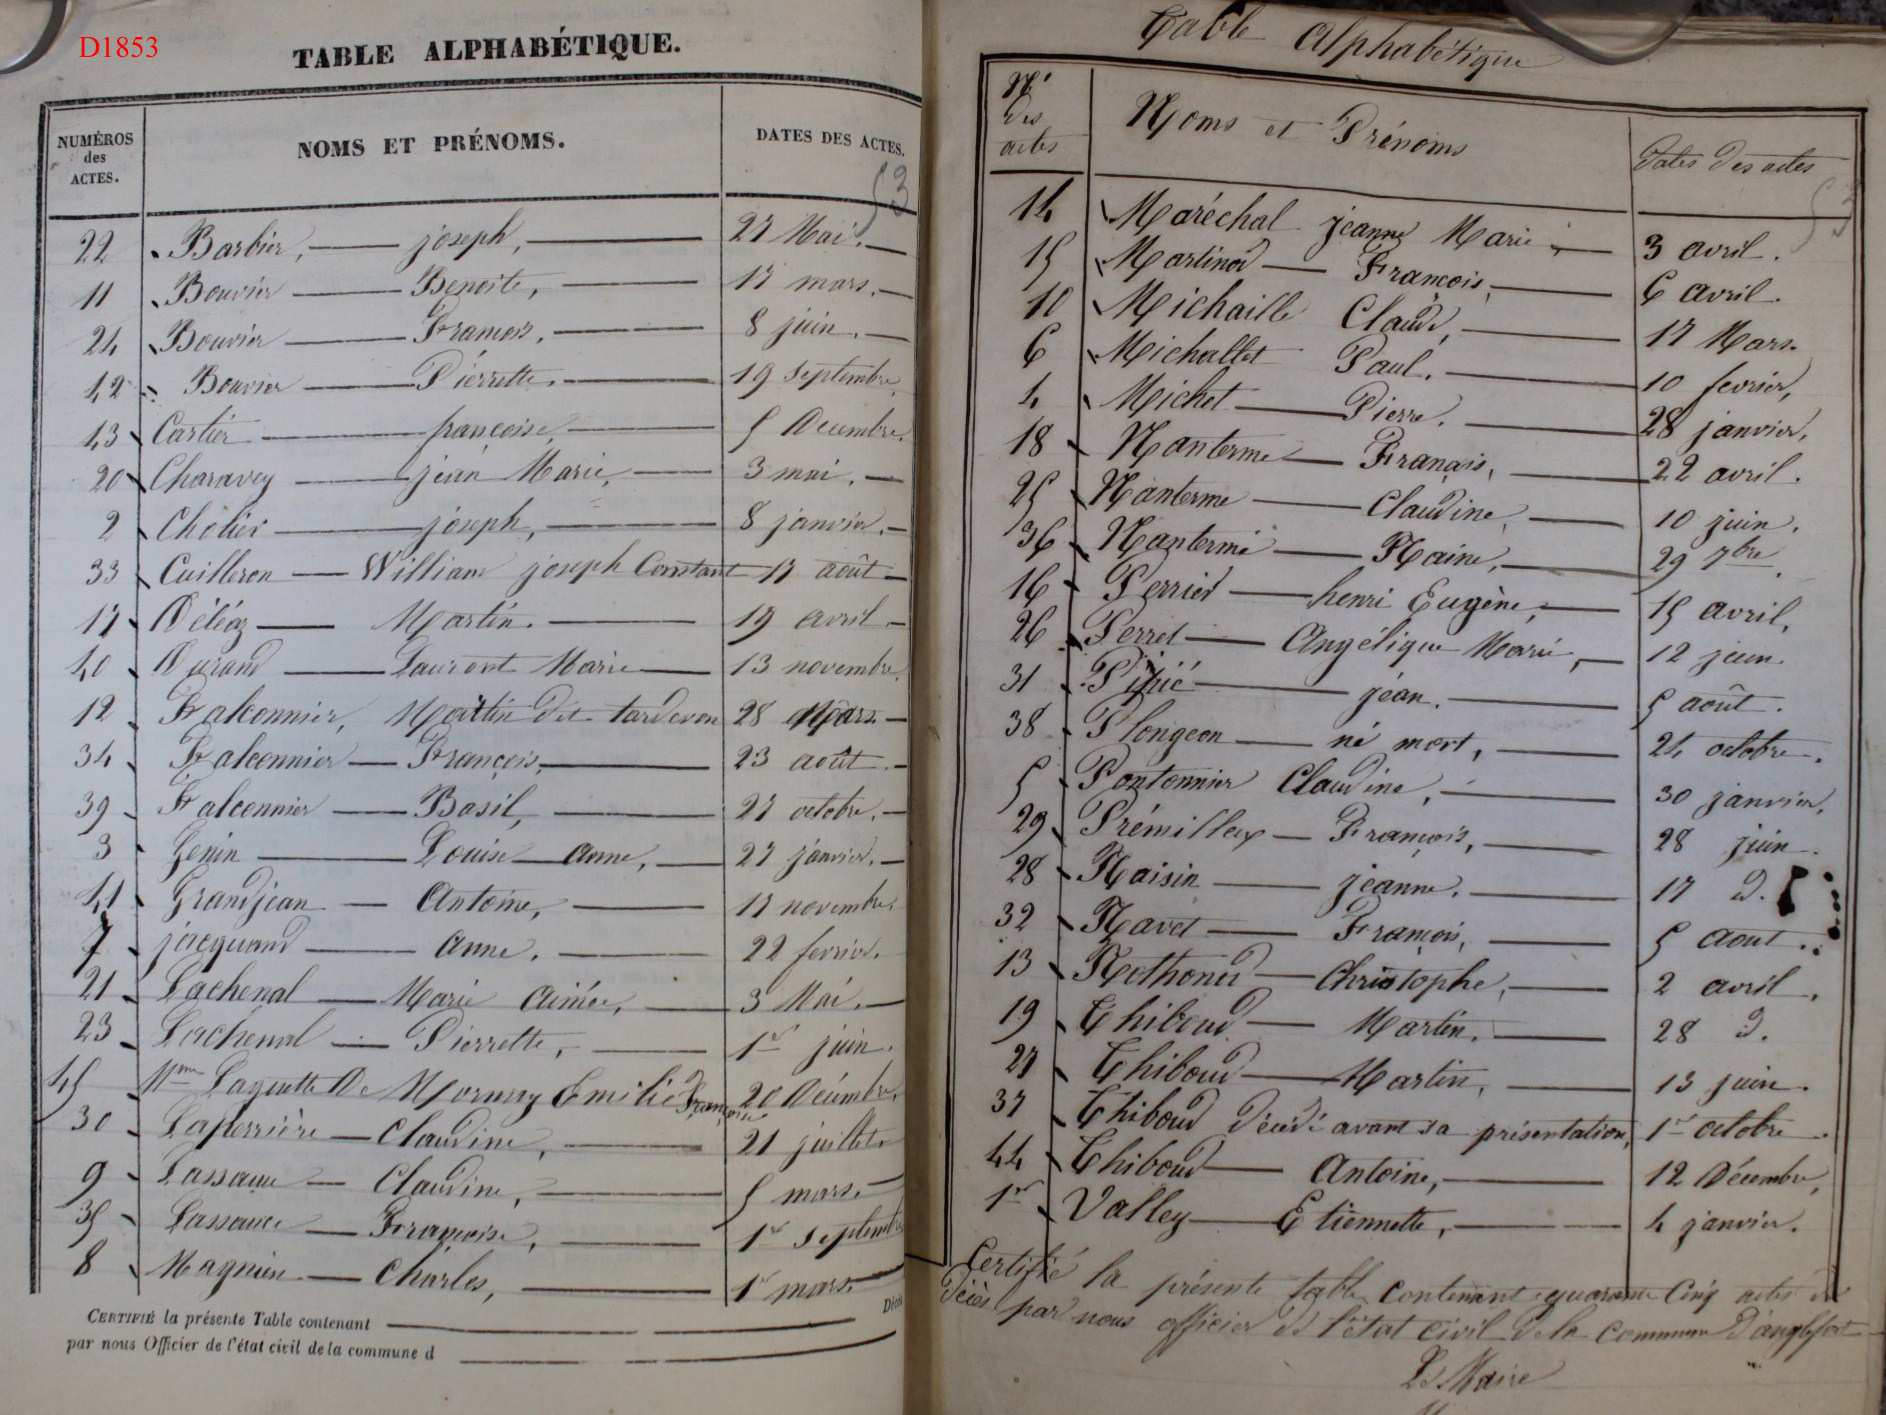 D1853
TABLE ALPHABÉTIQUE.
NUMÉROS des ACTES. NOMS ET PRÉNOMS. DATES DES ACTES.
53
22 Barbier, joseph, 27 Mai.
11 Bouvier Benoite, 17 mars.
24 Bouvier François, 8 juin.
42 Bouvier Pierrette. 19 septembre
43 Cartier francoise, 5 Decembre.
20 Charavey jean Marie, 3 mai.
2 Cholier joseph, 8 janvier.
33 Cuilleron William joseph Constant 17 août
17 Déléaz Martin. 19 avril
40 Durand Laurent Marie 13 novembre
12 Falconnier, Martin dit tardevon 28 Mars
34 Falconnier François, 23 août
39 Falconnier Basil, 27 octobre.
3 Genin Louise anne, 27 janvier.
41 Grandjean Antoine, 17 novembre
7 jacquand anne. 22 fevrier.
21 Lachenal Marie aimée, 3 Mai.
23 Lachenal Pierrette, 1er juin.
45 Mme Laguette De Mornay Emilie Françoise 20 Décembre
30 Laperrière Claudine, 21 juillet
9 Lassauce Claudine, 5 mars.
35 Lassauce Françoise, 1er septembre
8 Magnien Charles, 1er mars.
CERTIFIÉ la présente Table contenant
par nous Officier de l'état civil de la commune d
Table Alphabétique
Nos des actes Noms et Prénoms Dates des actes
53
14 Maréchal jeanne Marie, 3 avril.
15 Martinod François, 6 avril.
10 Michaille Claude, 17 Mars.
6 Michallet Paul. 10 fevrier,
4 Michet Pierre. 28 janvier,
18 Nanterme Français, 22 avril.
25 Nanterme Claudine, 10 juin.
36 Nanterme Naine, 29 7bre.
16 Perrier henri Eugène, 15 avril,
26 Perret Angélique Marie, 12 juin
31 jean. 5 août.
38 Plongeon né mort, 24 octobre.
5 Pontonnier Claudine, 30 janvier,
29 Prémillex François, 28 juin.
28 Raisin jeanne. 17 d.
32 Ravet François, 5 aout.
13 Rethoned Christophe, 2 avril.
19 Thiboud Martin. 28 d.
27 Thiboud Martin, 13 juin.
37 Thiboud décédé avant sa présentation, 1er octobre.
44 Thiboud Antoine, 12 Décembre,
1er Valley Etiennette, 4 janvier.
Certifié la présente table contenant quarante Cinq actes de
Décès par nous officier de l'état civil de la commune d'anglefort
Le Maire